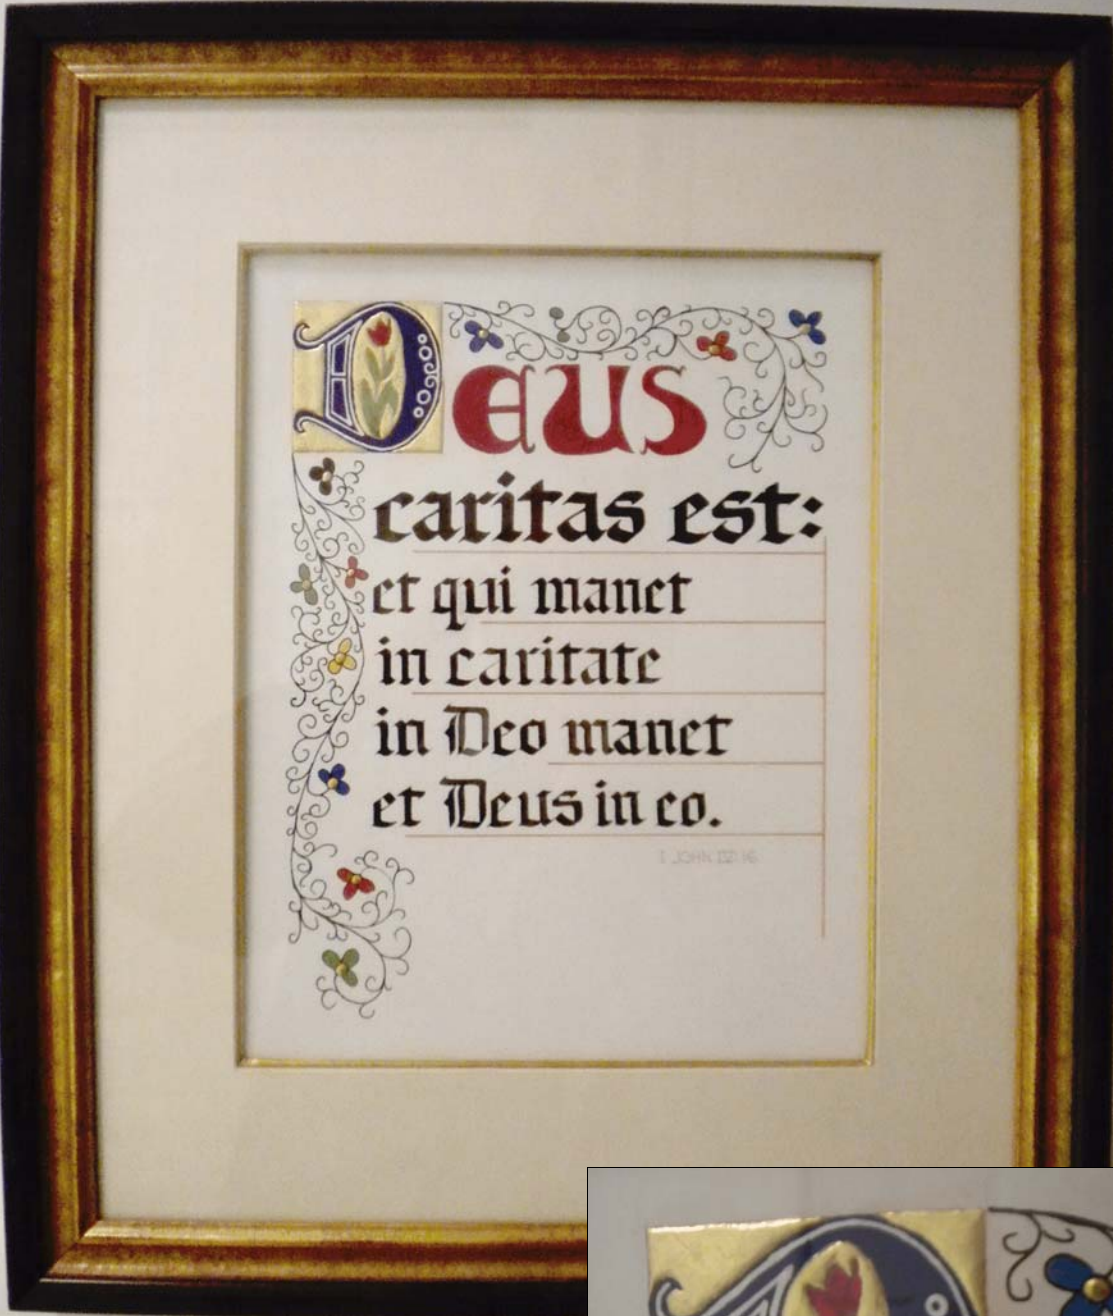 Deus
caritas est:
et qui manet
in caritate
in Deo manet
et Deus in eo.
I JOHN IV: 16